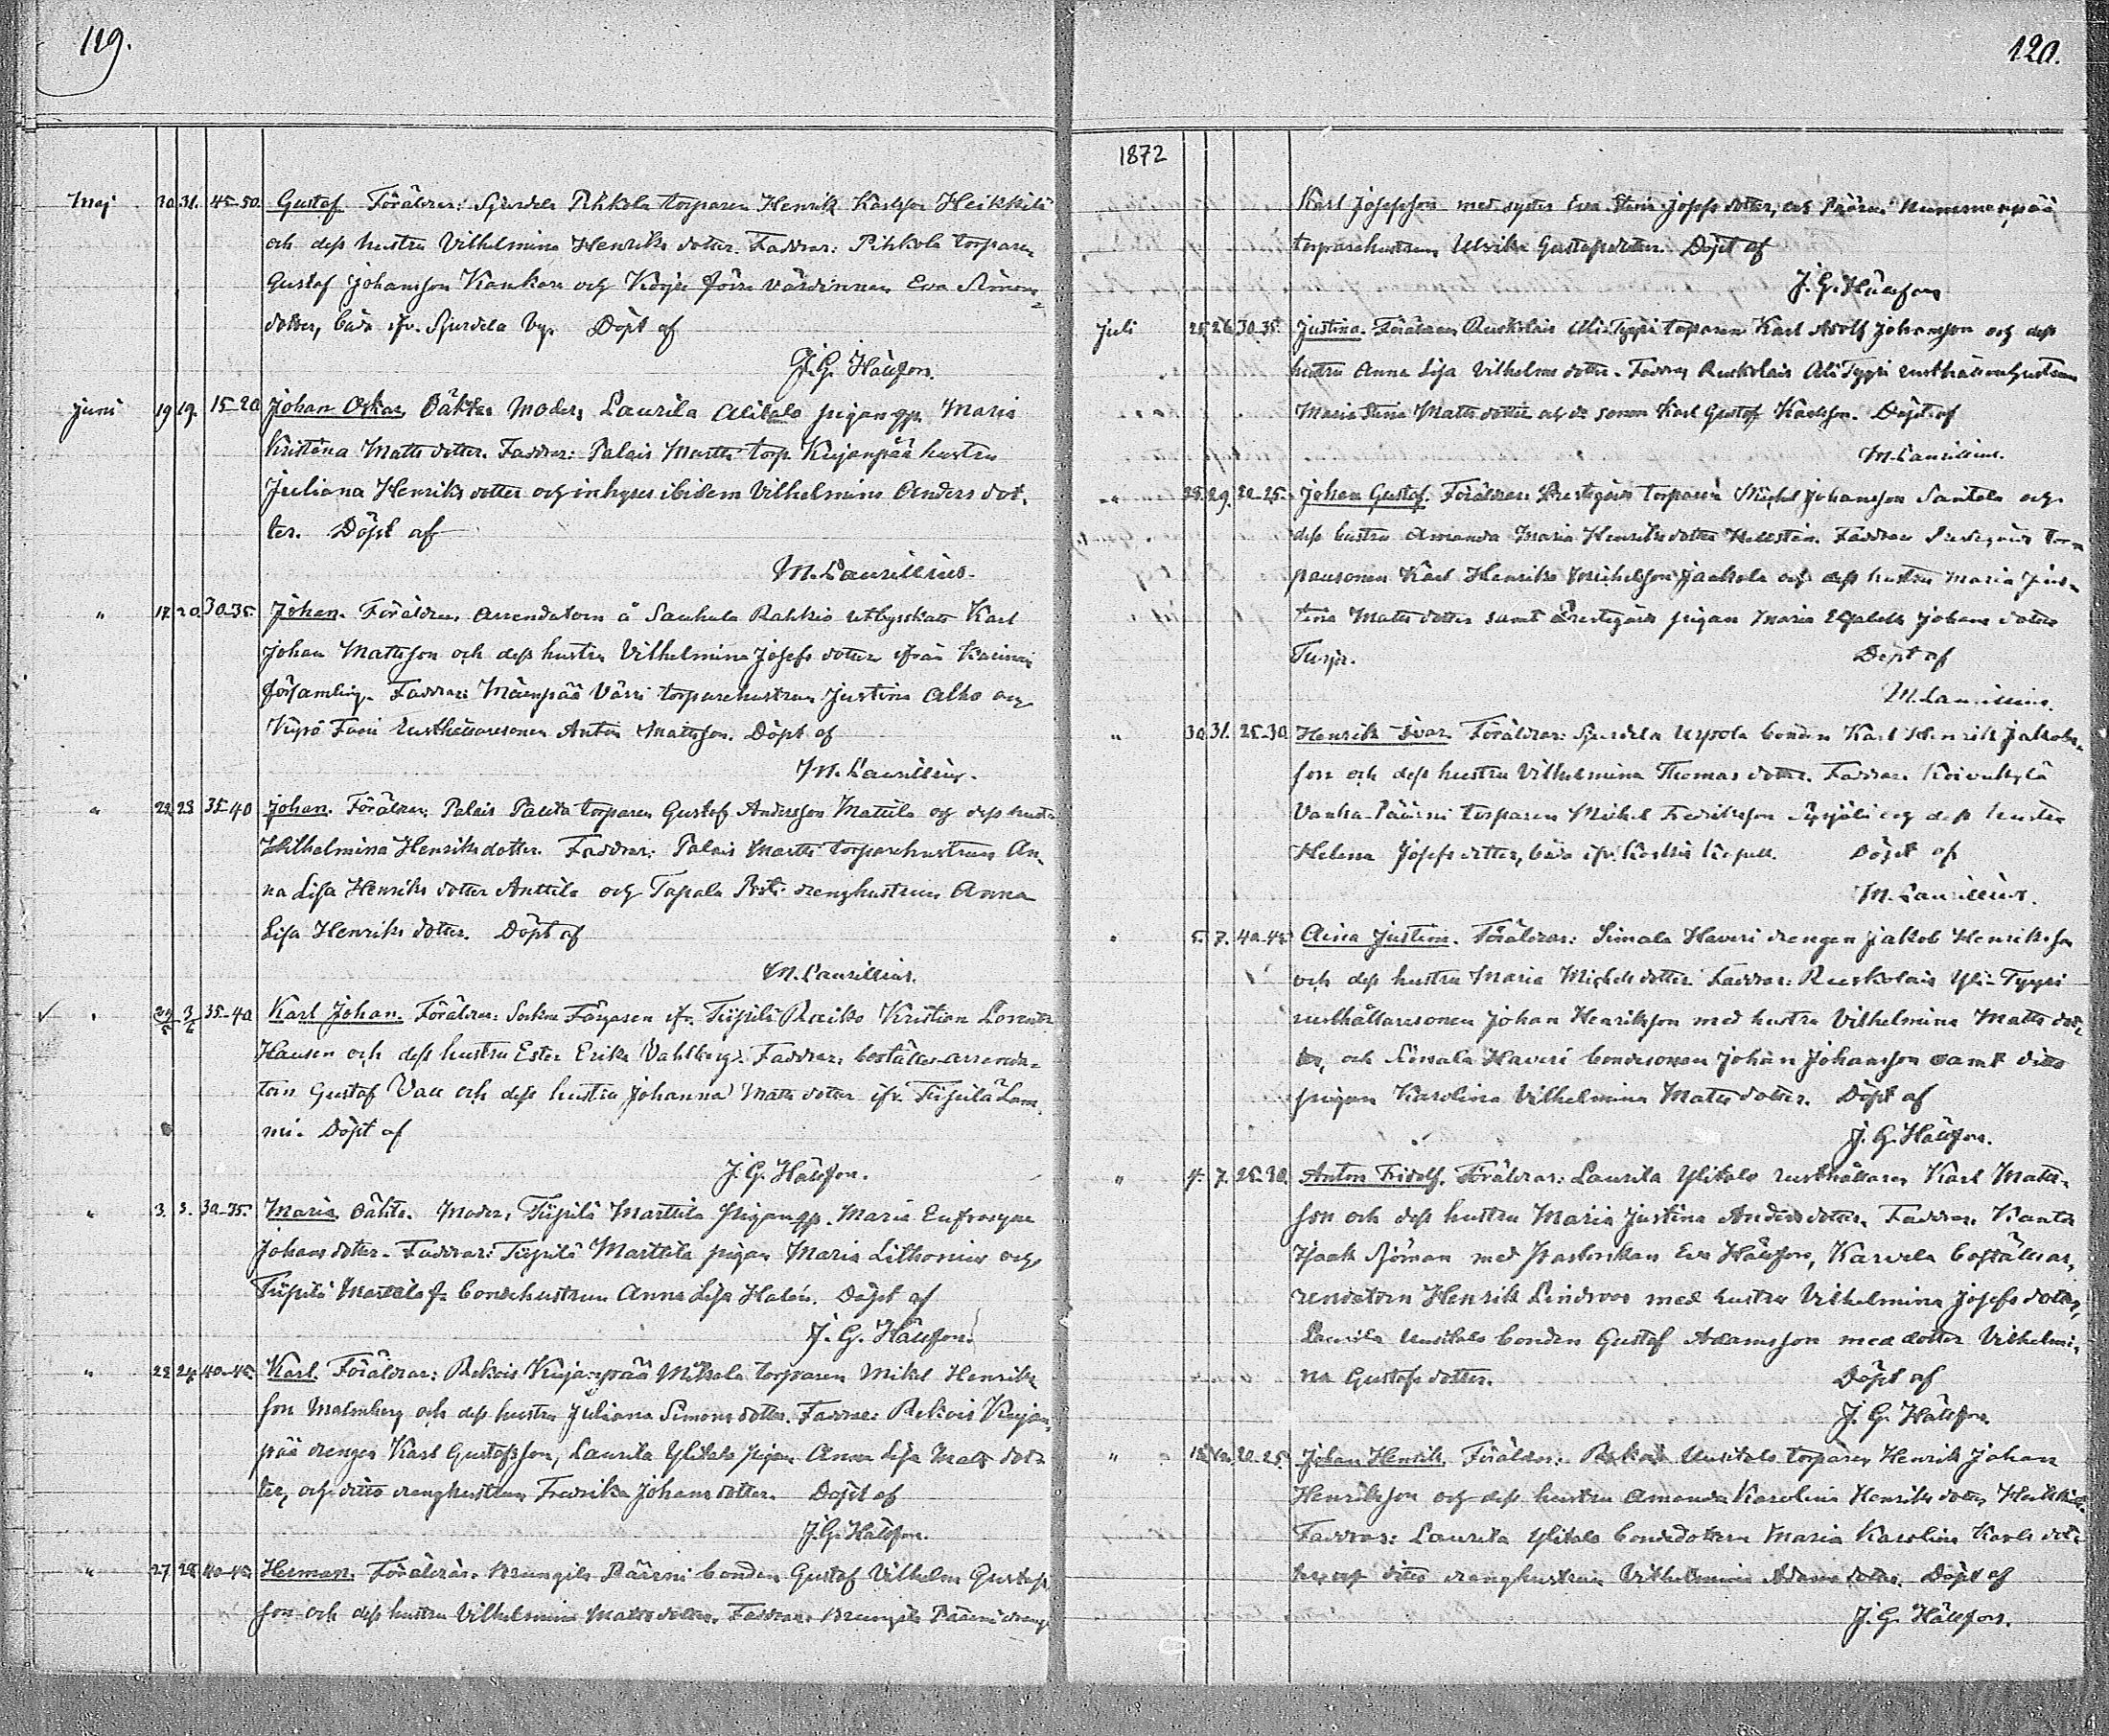 119.
Maj 30. 31. 45-50. Gustaf Föräldrar: Sjurdela Pihkola torparen Henrik Karlsson Heikkilä
och dess hustru Vilhelmina Henriks dotter. Faddrar: Pihkola torparen
Gustaf Johansson Kankare och förra värdinnan Eva Simons
dotter, båda ifr. Sjurdela by. Döpt af
J. G. Hällfors.
Juni 19 19. 15-20 Johan Oskar, Oäkta Moder, Laurila Alitalo pigan Maria
Kristina Matts dotter. Faddrar: Palais Martti torp. Kujanpää hustru
Juliana Henriks dotter och inhyses ibidem Vilhelmina Anders dot-
ter. Döpt af
M. Laurillius.
" 17. 20. 30-35. Johan. Föräldrar, arrendatorn å Sauhula Rahkio utbysskatt Karl
Johan Mattsson och dess hustru Vilhelmina Josefs dotter ifrån
församling. Faddrar: Mäenpää torparehustrun Justina Alho och
rusthållaresonen Anton Mattsson. Döpt af
M. Laurillius.
" 22. 23 35-40 Johan. Föräldrar: Palais Pauta torparen Gustaf Andersson Mattila och dess hustru
Vilhelmina Henriksdotter. Faddrar: Palais Martti torparehustrun An-
na Lisa Henriks dotter Anttila och Tapala drenghustrun Anna
Lisa Henriks dotter. Döpt af
M. Laurillius.
" 35-40 Karl Johan. Föräldrar: Socken Färgaren ifr. Tiipilä Raikko Kristian Lorentz
Hansen och dess hustru Ester Erika Vahlberg. Faddrar, boställs-arrenda-
torn Gustaf Vall och dess hustru Johanna Matts dotter ifr. Tiipilä Lam-
mi. Döpt af
J. G. Hällfors.
" 3. 3. 30-35. Maria Oäkta. Moder, Tiipilä Marttila pigan Maria Eufrosyne
Johans dotter. Faddrar: Tiipilä Marttila pigan Maria Lithonius och
Tiipilä bondehustrun Anna Lisa Halén. Döpt af
J. G. Hällfors.
" 23 24 40-45 Karl. Föräldrar: Rekois Kujanpää Mikkola torparen Mikel Henriks
son Malmberg och dess hustru Juliana Simons dotter. Faddrar: Rekois Kujan-
pää drengen Karl Gustafsson, Laurila Ylitalo pigan Anna Lisa Matts dot-
ter, och ditto drenghustrun Fredrika Johans dotter. Döpt af
J. G. Hällfors.
" 27 28 40-45 Herman. Föräldrar. Brungila Päärni bonden Gustaf Vilhelm Gustafs
son och dess hustru Vilhelmina Matts dotter. Faddrar. Brungila Päärni dreng
120.
1872
Karl Josefsson med syster Eva Stina Josefs dotter, och Päärni Nummenpää
torparehustrun Ulrika Gustafsdotter. Döpt af
J. G. Hällfors
Juli 25. 26. 30-35. Justina. Föräldrar, Ruskolais Ali-Tyypi torparen Karl Adolf Johansson och dess
hustru Anna Lisa Vilhelms dotter. Faddrar, Ruskolais Ali Tyypi rusthållarehustrun
Maria Stina Matts dotter och d:o sonen Karl Gustaf Karlsson. Döpt af
M. Laurillius.
" 28. 29. 20-25. Johan Gustaf. Föräldrar. Prestgårds torparen Michel Johansson Santala och
dess hustru Amanda Maria Henriks dotter Hellsten. Faddrar Prestgårds tor-
paresonen Karl Henriks Michelsson Jaakola och dess hustru Maria Jus-
tina Matts dotter samt Prestgårds pigan Maria Johans dotter
Döpt af
M. Laurillius.
" 30. 31. 25-30 Henrik Ivar. Föräldrar: Sjurdela Uspola bonden Karl Henrik Jakobs-
son och dess hustru Vilhelmina Thomas dotter. Faddrar. Koivukylä
Vanha-Päärni torparen Mikel Fredriksson och dess hustru
Helena Josefs dotter, båda ifr. Koskis Kapell. Döpt af
M. Laurillius.
" 5. 7. 40-45 Aina Justina. Föräldrar: Simala Haveri drengen Jakob Henriksson
och dess hustru Maria Michels dotter. Faddrar: Ruskolais Yli-Tyypi
rusthållaresonen Johan Henriksson med hustru Vilhelmina Matts dot-
ter, och Simala Haveri bondesonen Johan Johansson samt ditto
pigan Karolina Vilhelmina Matts dotter. Döpt af
J. G. Hällfors.
" 4. 7. 25-30. Anton Fridolf. Föräldrar: Laurila Ylitalo rusthållaren Karl Matts-
son och dess hustru Maria Justina Anders dotter. Faddrar. Kantor
Isaak Sjöman med Pastorskan Eva Hällfors, Karvela boställsar-
rendatorn Henrik Lindroos med hustru Vilhelmina Josefs dotter,
Laurila Uusitalo bonden Gustaf Adamsson med dotter Vilhelmi-
na Gustafs dotter. Döpt af
J. G. Hällfors
" 20-25. Johan Henrik. Föräldrar: Rekois Uusitalo torparen Henrik Johan
Henriksson och dess hustru Amanda Karolina Henriks dotter Heikkilä.
Faddrar: Laurila Ylitalo bondedottern Maria Karolina Karls dot-
ter, och ditto drenghustrun Vilhelmina Adams dotter. Döpt af
J. G. Hällfors.